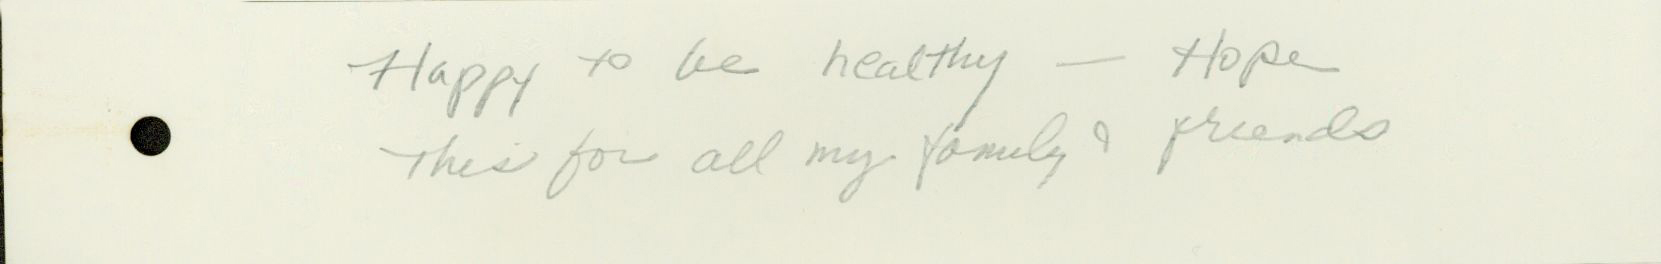 Happy to be healthy — Hope
this for all my family & friends